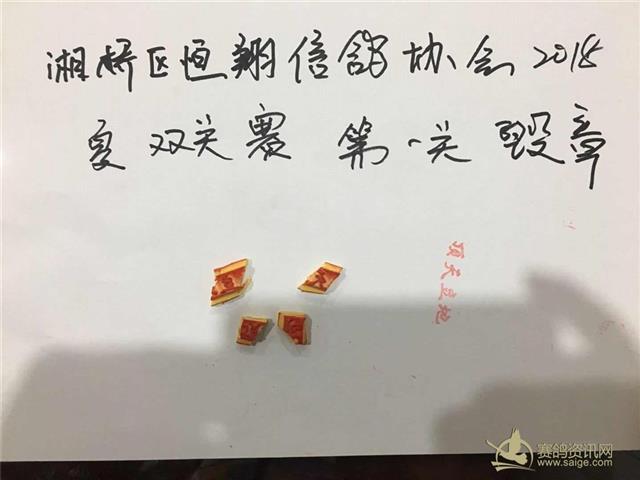 湘桥区恒翔信鸽协会2018
夏双关赛 第一关 毁章
顶天立地
赛鸽资讯网
www.saige.com